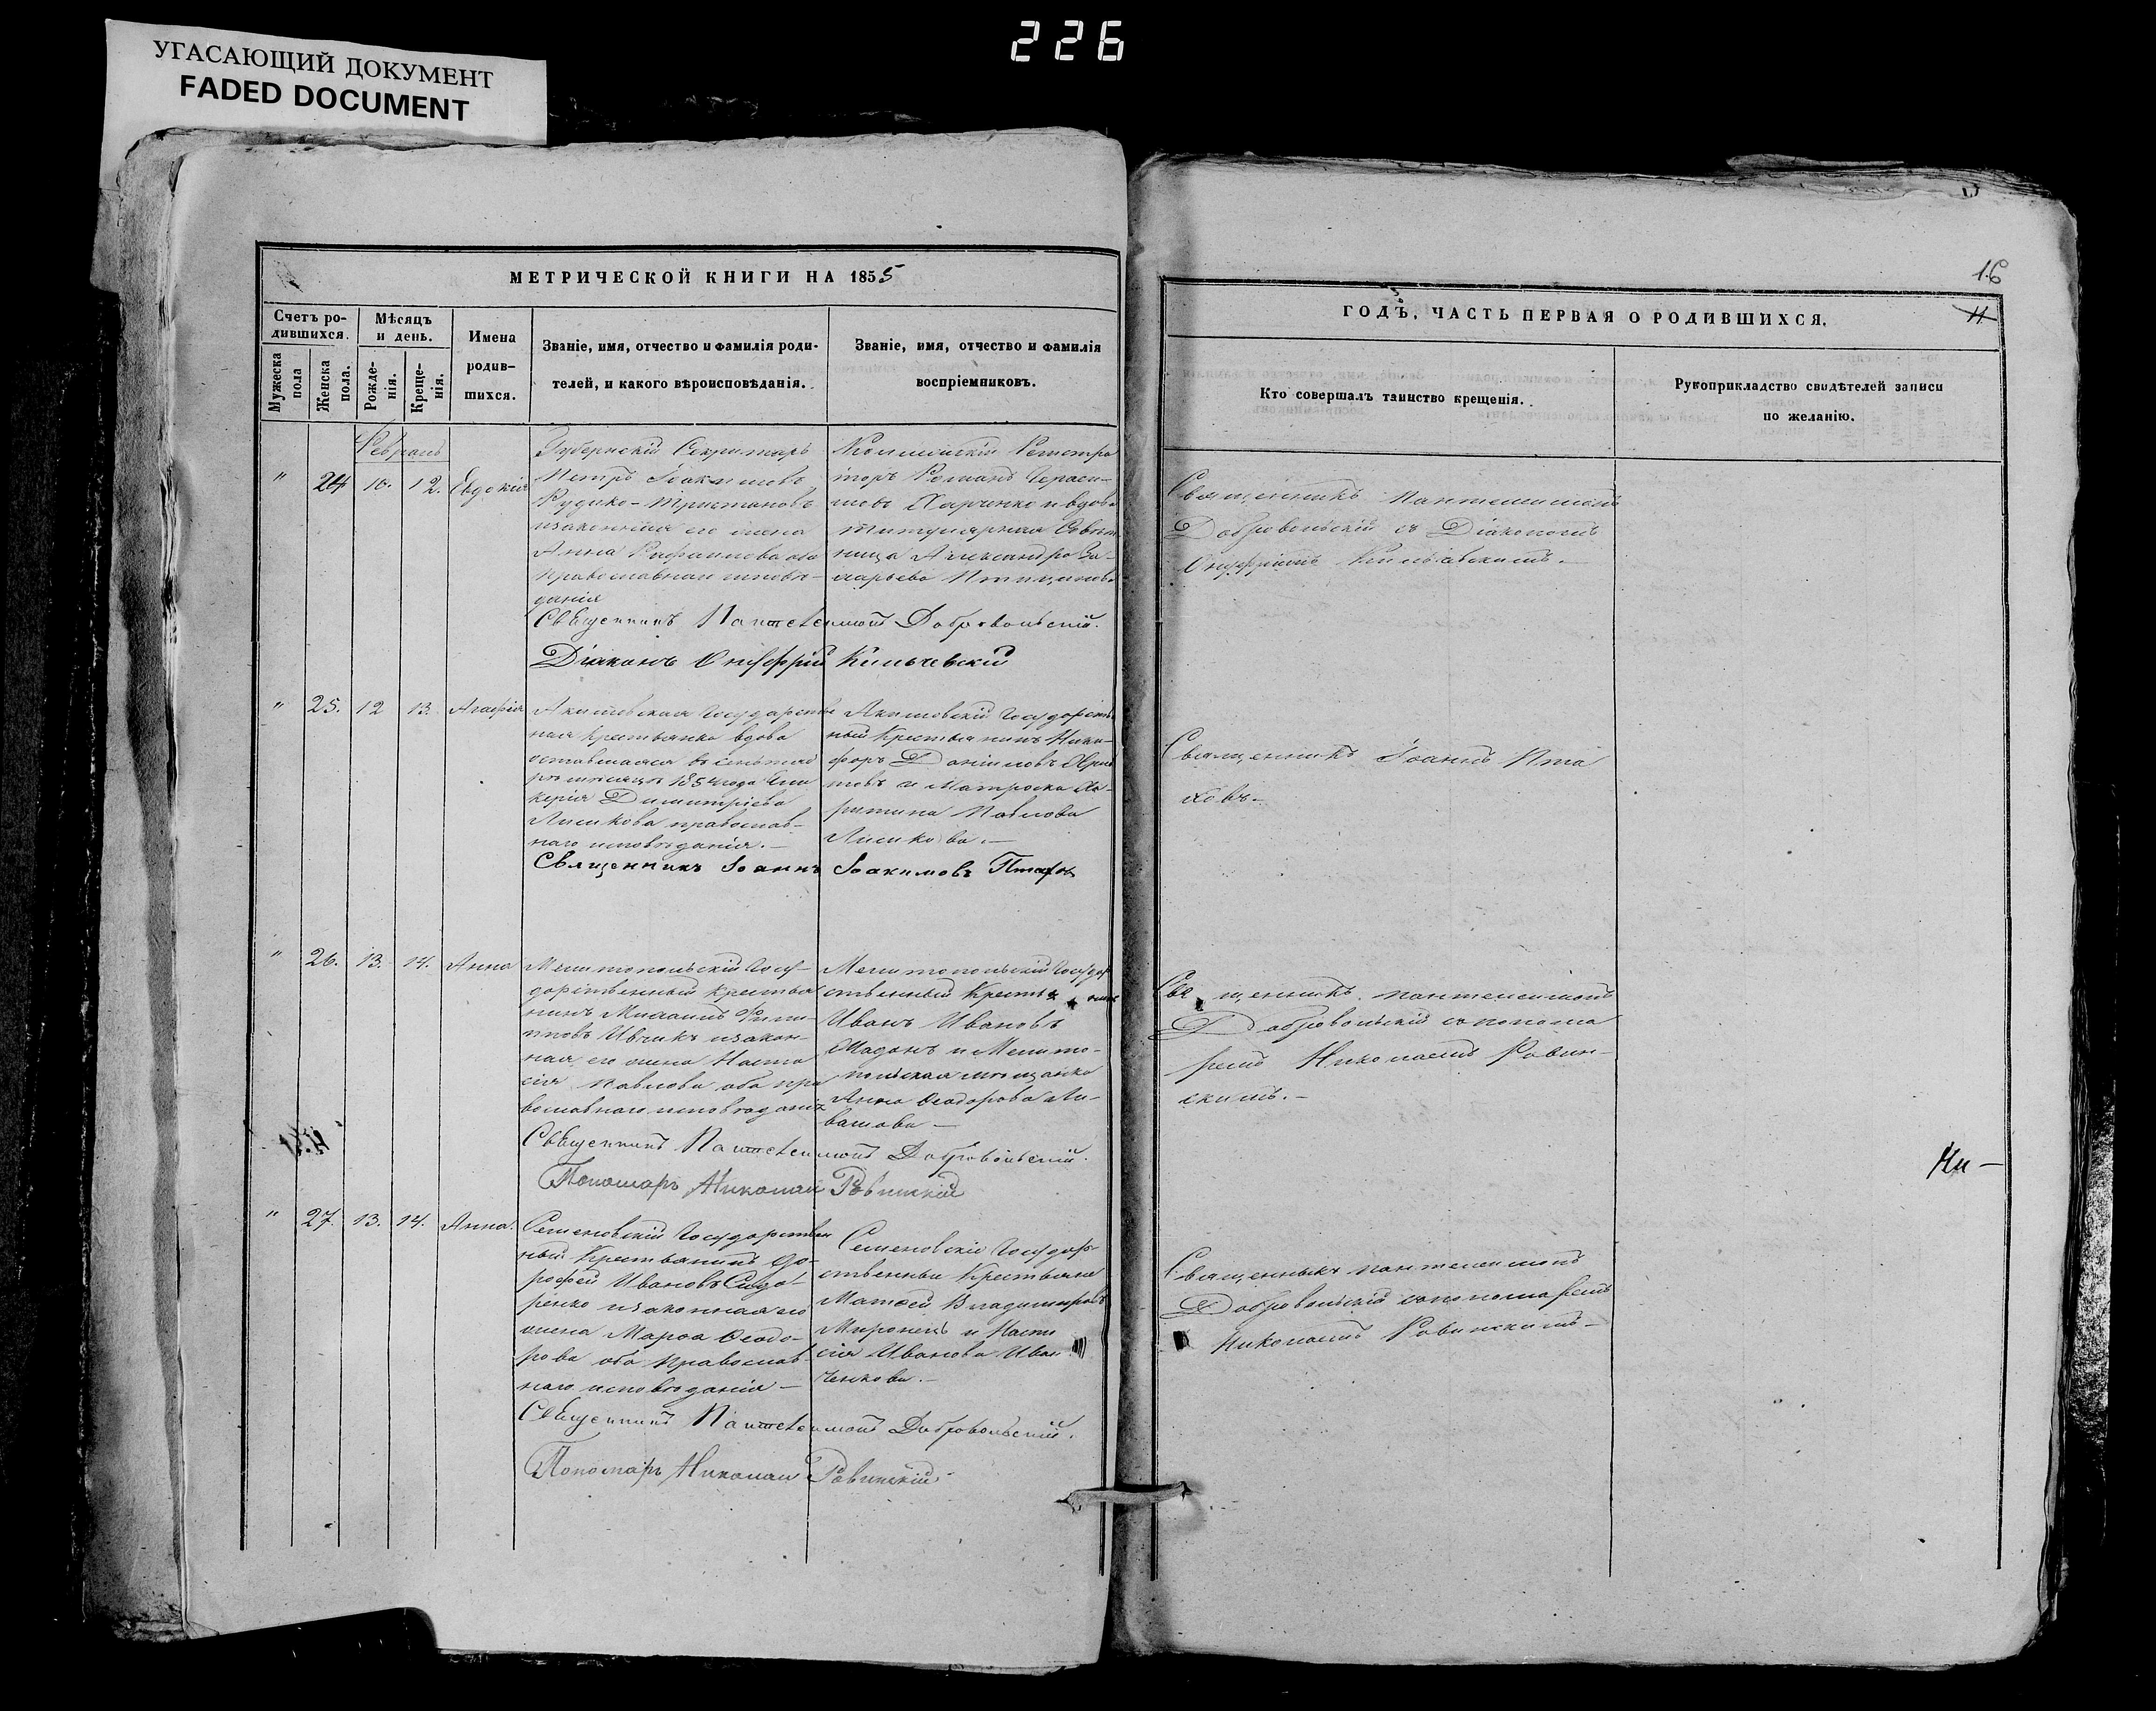 226
УГАСАЮЩИЙ ДОКУМЕНТ
FADED DOCUMENT
МЕТРИЧЕСКОЙ КНИГИ НА 1855
Счетъ ро-
дившихся.
Мужеска
пола
Женска
пола.
Мѣсяцъ
и день.
Рожде-
нія.
Креще-
нія.
Имена
родив-
шихся.
Званіе, имя, отчество и фамилія роди-
телей, и какого вѣроисповѣданія.
Званіе, имя, отчество и фамилія
воспріемниковъ.
Февраль
" 24 10. 12. Евдокія
Губернскій Секритарь
Петръ Іоакимовъ
Рудько-Тристановъ
изаконная его жена
Анна Рафаилова оба
православнаго исповѣ-
данія
Колежскій Регистра
торъ Романъ Гераси-
мовъ Харченко и вдова
титулярная Совѣт
ница Александра За-
харьева
Священникъ Пантелеимонъ Добровольскій.
Діаконъ Онуфрій Кильчевскій
" 25. 12 13. Агафія
Акимовская Государствен
ная крестьянка вдова
оставшаяся въ сентяб
рѣ мѣсяцѣ 1854 года Гли
керія Димитріева
Лисикова православ-
наго исповѣданія.-
Акимовскій Государствен
ный Крестьянинъ Ники-
форъ Даниловъ
товъ и Матроска Ха-
ритина Павлова
Лисикова.-
Священникъ Іоаннъ Іоакимовъ Птаховъ
" 26. 13. 14. Анна
Мелитопольскій Госу-
дарственный крестья
нинъ Михаилъ Фили-
повъ Ивчикъ изакон-
ная его жена Наста
сія Павлова оба пра
вославнаго исповѣданія
Мелитопольскій Государ
ственный Крестьянинъ
Иванъ Ивановъ
и Мелито-
польская мѣщанка
Анна Ѳеодорова Ли-
вашова-
Священникъ Пантелеимонъ Добровольскій.
Пономарь Николай Ровинскій
" 27. 13. 14. Анна.
Семеновскій Государствен
ный Крестьянинъ До-
рофей Ивановъ Сидо-
ренко изаконная его
жена Марѳа Ѳеодо-
рова оба Православ-
наго исповѣданія-
Семеновскіе Государ-
ственные Крестьяне
Матѳей Владимировъ
Миронецъ и Наста
сія Иванова Иван
ченкова.-
Священникъ Пантелеимонъ Добровольскій.
Пономарь Николай Ровинскій.
16
11
ГОДЪ, ЧАСТЬ ПЕРВАЯ О РОДИВШИХСЯ.
Кто совершалъ таинство крещенія.
Рукоприкладство свидѣтелей записи
по желанію.
Священникъ Пантелеимонъ
Добровольскій съ Діакономъ
Онуфріемъ Кильчевскимъ.-
Священникъ Іоаннъ Пта
ховъ.-
Священникъ Пантелеимонъ
Добровольскій съ понома
ремъ Николаемъ Ровин-
скимъ.-
Ни-
Священникъ Пантелеимонъ
Добровольскій съ пономаремъ
Николаемъ Ровинскимъ-